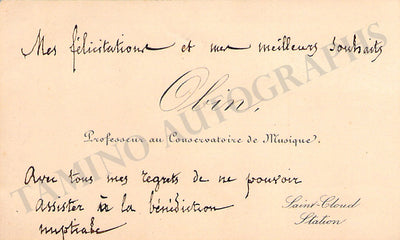 Mes félicitations et mes meilleurs souhaits
Obin,
Professeur au Conservatoire de Musique.
Avec tous mes regrets de ne pouvoir
assister à la bénédiction
nuptiale
Saint-Cloud
Station
TAMINO AUTOGRAPHS